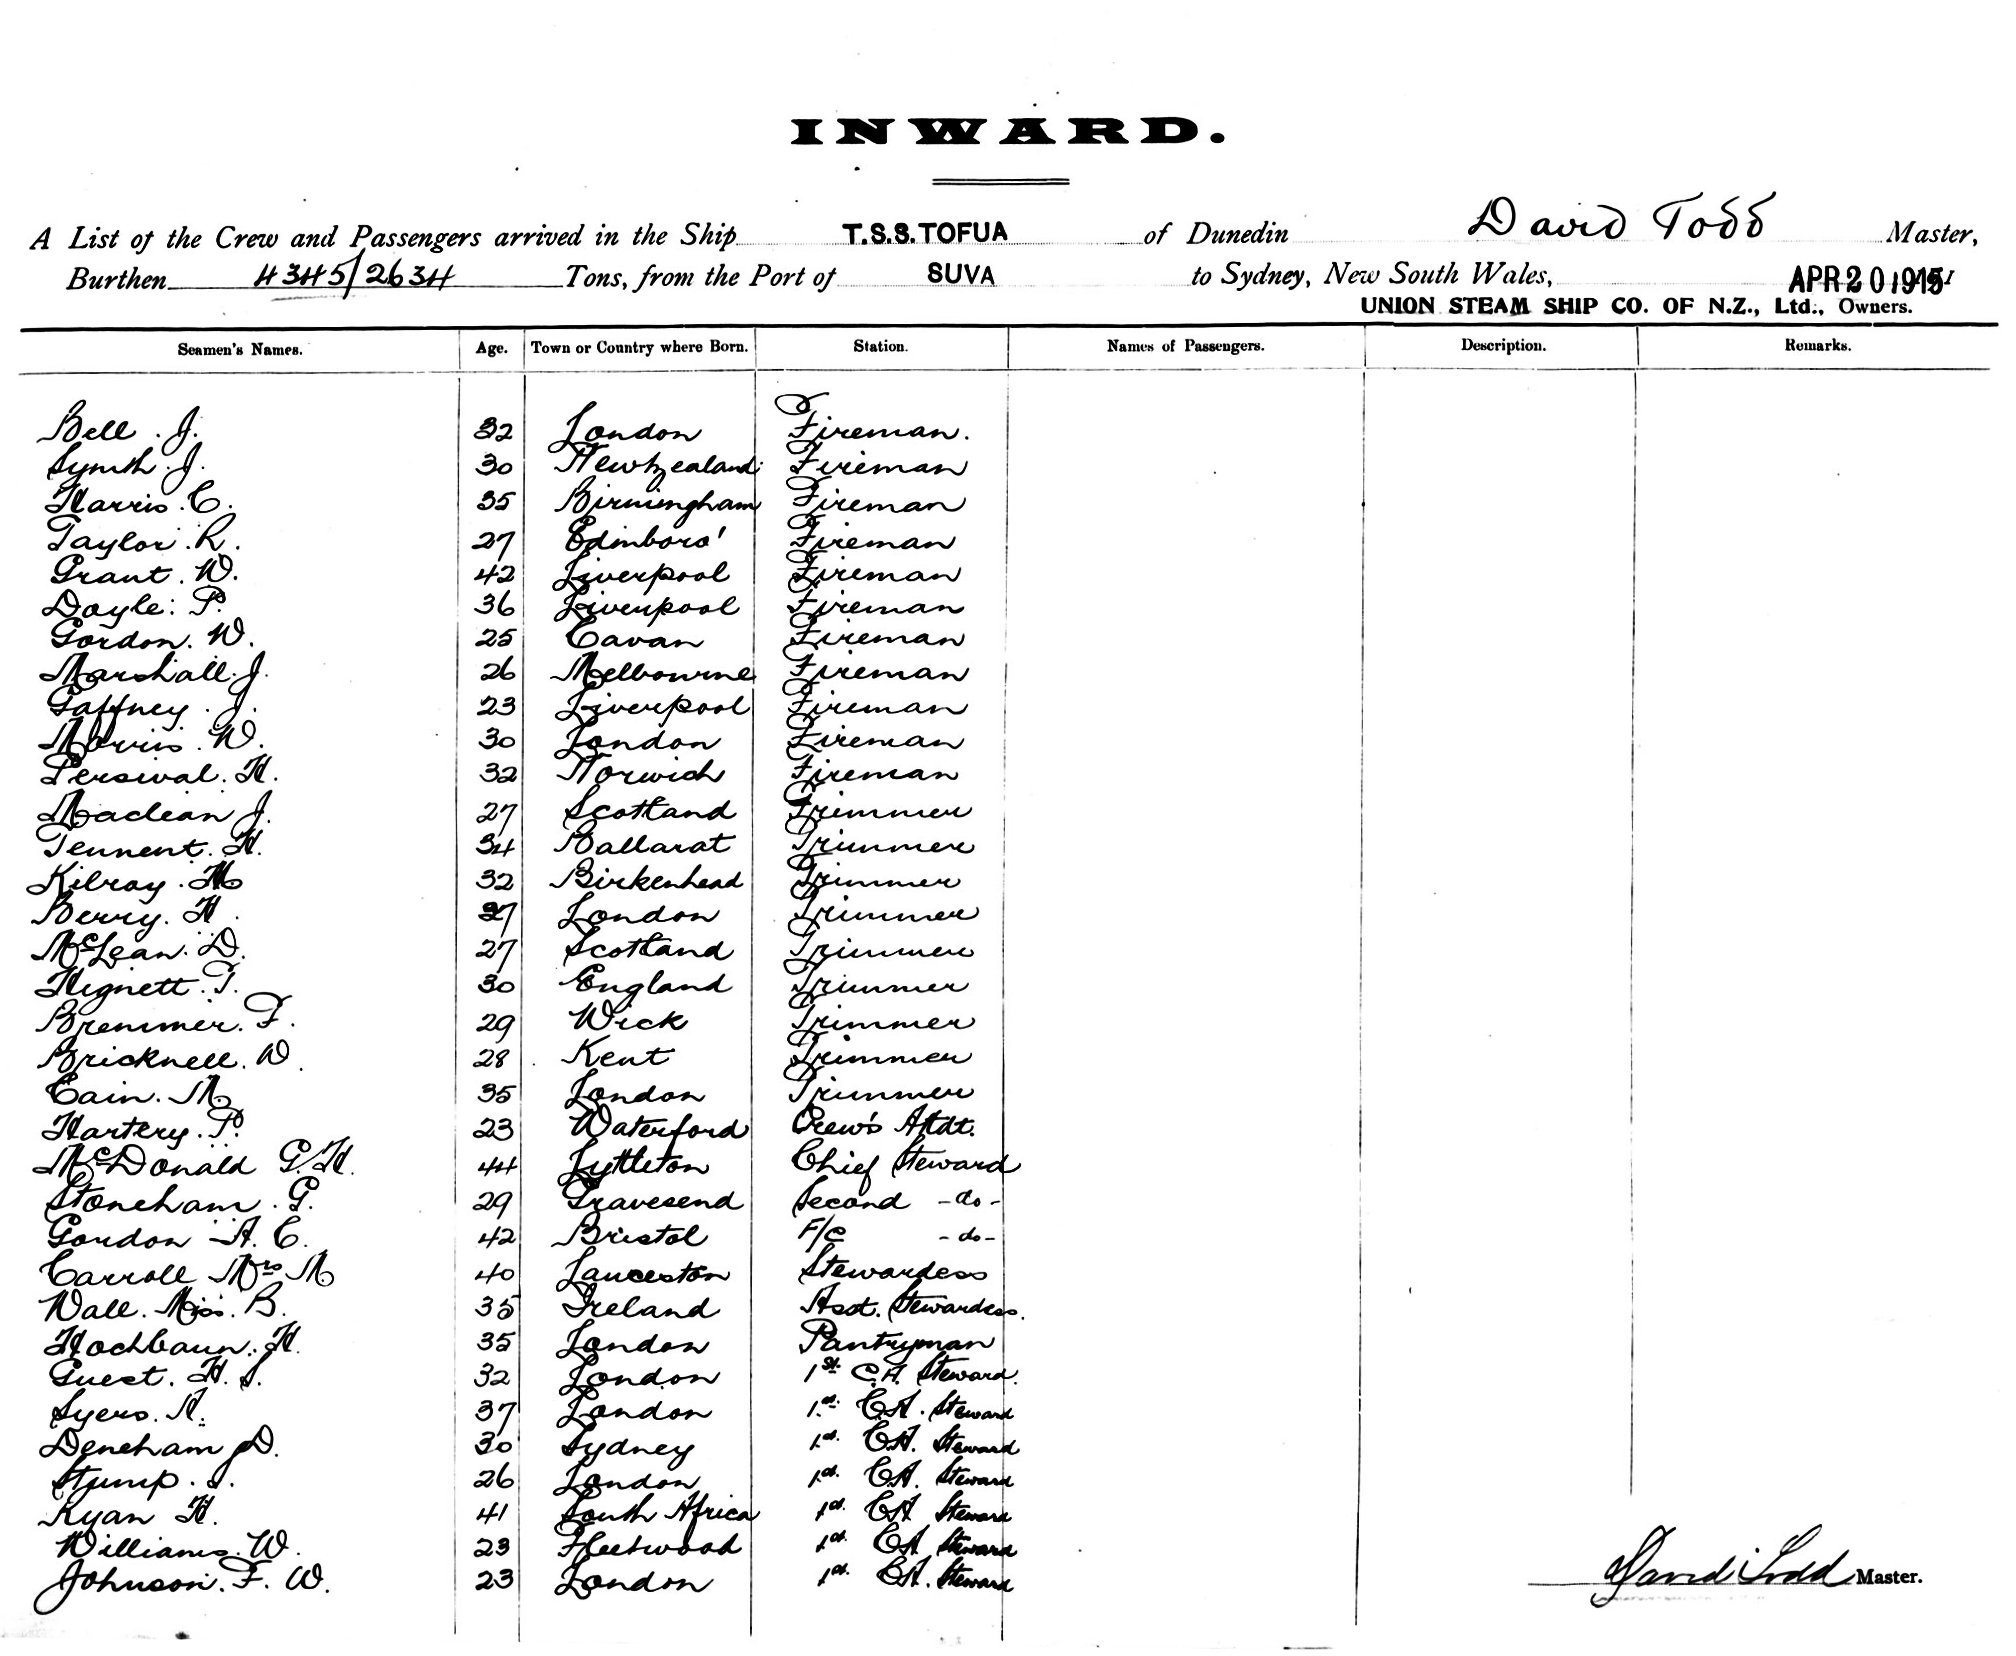 INWARD.
A List of the Crew and Passengers arrived in the Ship T.S.S. TOFUA of Dunedin David Todd Master,
Burthen 4345/2634 Tons, from the Port of SUVA to Sydney, New South Wales, APR 20 1915
UNION STEAM SHIP CO. OF N.Z., Ltd., Owners.
Seamen's Names. Age. Town or Country where Born. Station. Names of Passengers. Description. Remarks.
Bell. J. 32 London Fireman.
Symth. J. 30 New Zealand Fireman
Harris. C. 35 Birmingham Fireman
Taylor. R. 27 Edinboro' Fireman
Grant. W. 42 Liverpool Fireman
Doyle. P. 36 Liverpool Fireman
Gordon. W. 25 Cavan Fireman
Marshall. J. 26 Melbourne Fireman
Gaffney. J. 23 Liverpool Fireman
Morris. W. 30 London Fireman
Persival. H. 32 Norwich Fireman
Maclean J. 27 Scotland Trimmer
Tennent. H. 34 Ballarat Trimmer
Kilroy. M 32 Birkenhead Trimmer
Berry. H. 37 London Trimmer
McLean. D. 27 Scotland Trimmer
Hignett. T. 30 England Trimmer
Bremmer. F. 29 Wick Trimmer
Bricknell. W. 28 Kent Trimmer
Cain. M 35 London Trimmer
Hartery. P. 23 Waterford Crew's Attdt.
McDonald G. H. 44 Lyttleton Chief Steward
Stoneham. G. 29 Gravesend Second -do-
Gordon A. C. 42 Bristol F/C -do-
Carroll Mrs M 40 Launceston Stewardess
Wall. Miss. B. 35 Ireland Asst. Stewardess.
Hochbaun. H. 35 London Pantryman
Guest. H. S. 32 London 1st C.A. Steward.
Syers. A. 37 London 1st C.A. Steward
Deneham D. 30 Sydney 1st C.A. Steward
Stump. S. 26 London 1st C.A. Steward
Ryan H. 41 South Africa 1st C.A. Steward
Williams. W. 23 Fleetwood 1st C.A. Steward
Johnson. F. W. 23 London 1st C.A. Steward
David Todd Master.